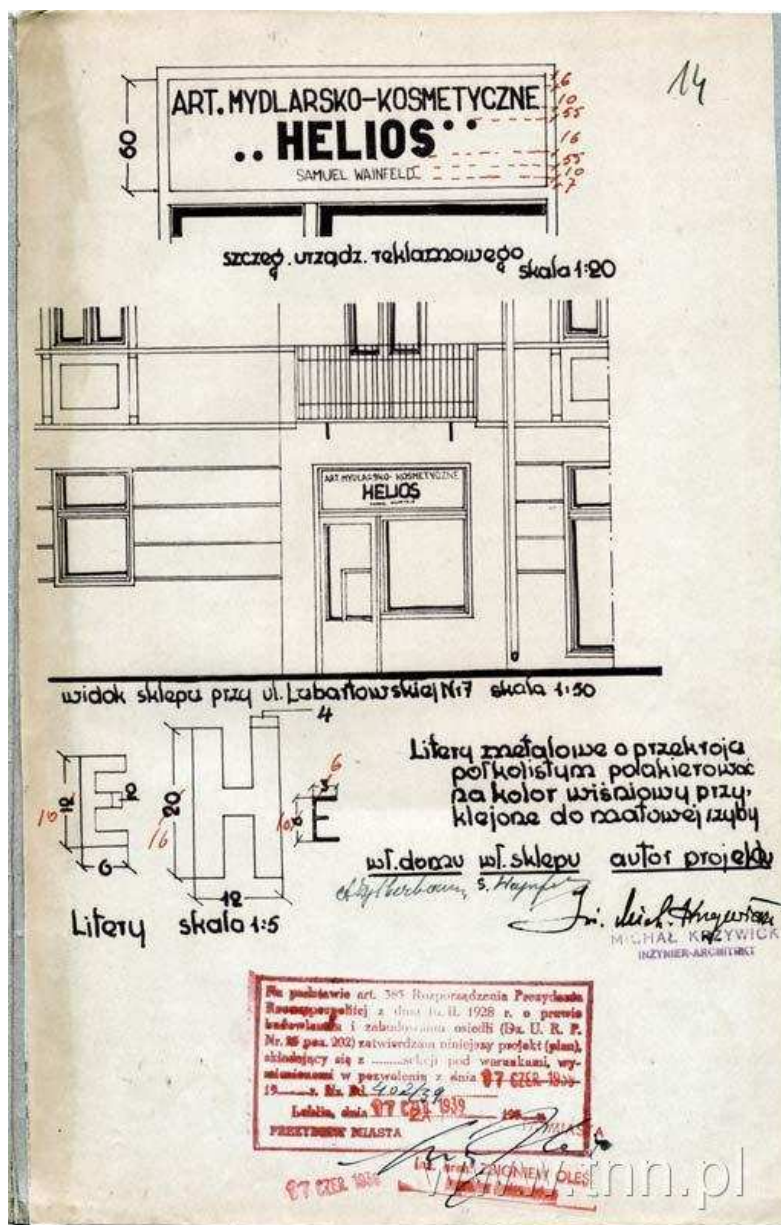 14
ART. MYDLARSKO-KOSMETYCZNE
„HELIOS”
SAMUEL WAJNFELD
60
6
10
55
16
55
10
7
szczeg. urządz. reklamowego
skala 1:20
ART. MYDLARSKO-KOSMETYCZNE
HELIOS
widok sklepu przy ul. Lubartowskiej Nr 7 skala 1:50
4
E H E
12
10
2
6
20
16
12
6
10
Litery skala 1:5
Litery metalowe o przekroju
półkolistym polakierować
na kolor wiśniowy przy-
klejone do matowej szyby
wł. domu wł. sklepu autor projektu
S. Wajnfeld
Inż. Mich. Krzywicki
MICHAŁ KRZYWICKI
INŻYNIER-ARCHITEKT
Na podstawie art. 385 Rozporządzenia Prezydenta
Rzeczypospolitej z dnia 16. II. 1928 r. o prawie
budowlanem i zabudowaniu osiedli (Dz. U. R. P.
Nr. 23 poz. 202) zatwierdzam niniejszy projekt (plan),
składający się z ........ sekcji pod warunkami, wy-
mienionemi w pozwoleniu z dnia 07 CZER 1939
19 r. Nr. 402/39
Lublin, dnia 07 CZE 1939 19
PREZYDENT MIASTA
Inż. arch. ZBIGNIEW OLEŚ
07 CZER 1939
www.tnn.pl